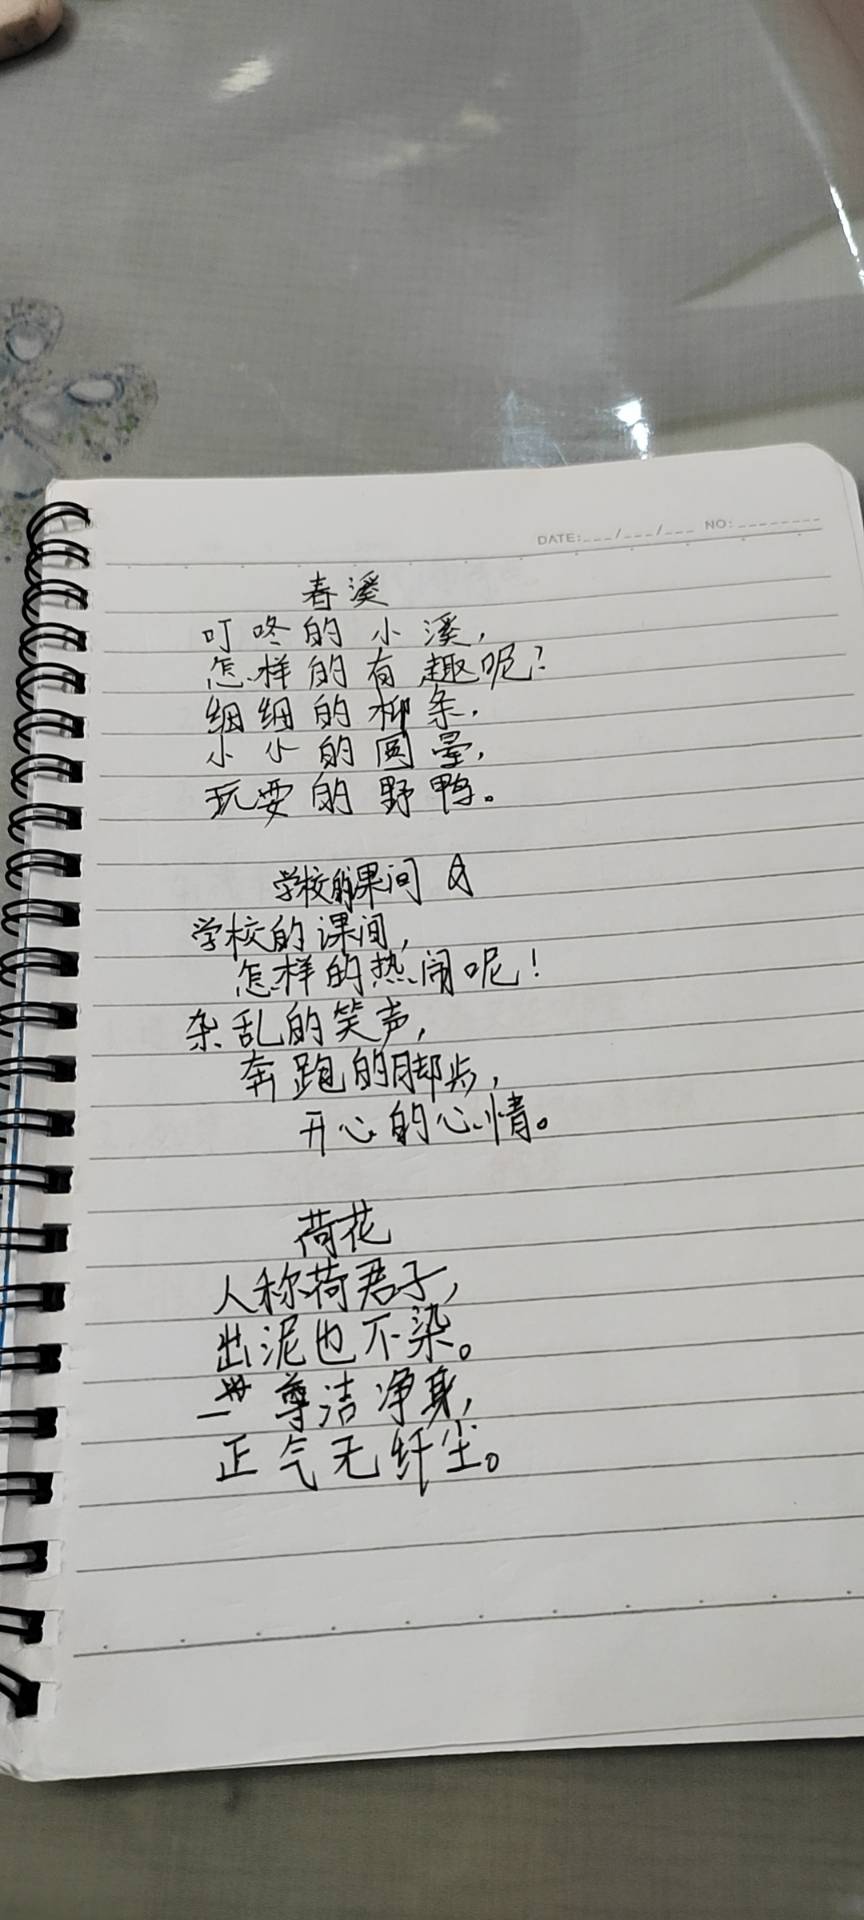 DATE:___/___/___ NO:________
春溪
叮咚的小溪,
怎样的有趣呢?
细细的柳条,
小小的圆晕,
玩耍的野鸭。
学校的课间
学校的课间,
怎样的热闹呢!
杂乱的笑声,
奔跑的脚步,
开心的心情。
荷花
人称荷君子,
出泥也不染。
一尊洁净身,
正气无纤尘。